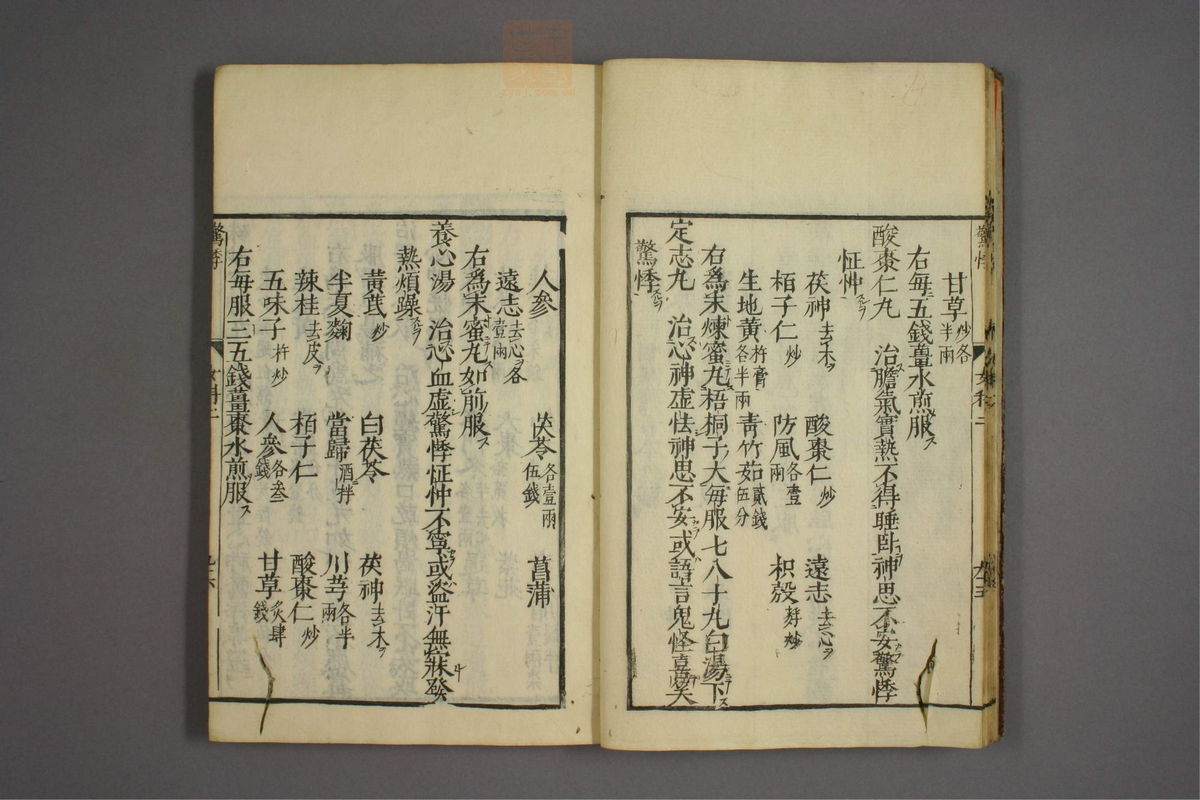 甘草炒各半兩
右每五錢薑水煎服ス
酸棗仁丸　治膽氣實熱不得睡臥神思不安驚悸
怔忡
茯神去木ヲ　酸棗仁炒　遠志去心ヲ
栢子仁炒　防風各壹兩　枳殼麩炒
生地黃杵膏各半兩　靑竹茹貳錢伍分
右爲末煉蜜丸梧桐子大每服七八十丸白湯下
定志丸　治心神虛怯神思不安或語言鬼怪喜笑
驚悸
人參　茯苓各壹兩伍錢　菖蒲
遠志去心ヲ各壹兩
右爲末蜜丸如前服
養心湯　治心血虛驚悸怔忡不寧或盜汗無寐發
熱煩躁
黃芪炒　白茯苓　茯神去木ヲ
半夏麴　當歸酒拌　川芎各半兩
辣桂去皮ヲ　栢子仁　酸棗仁炒
五味子杵炒　人參各叁錢　甘草炙肆錢
右每服三五錢薑棗水煎服ス
驚悸